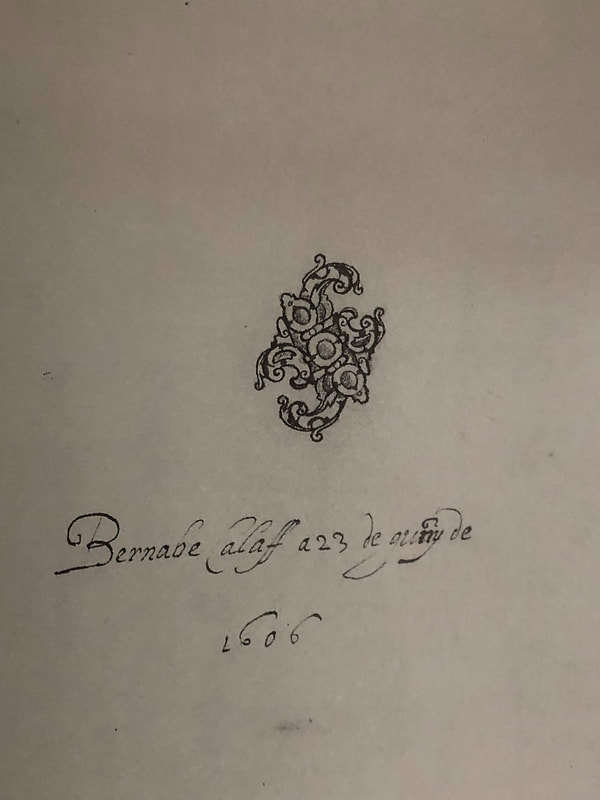 Bernabe Calaff a 23 de guny de
1606